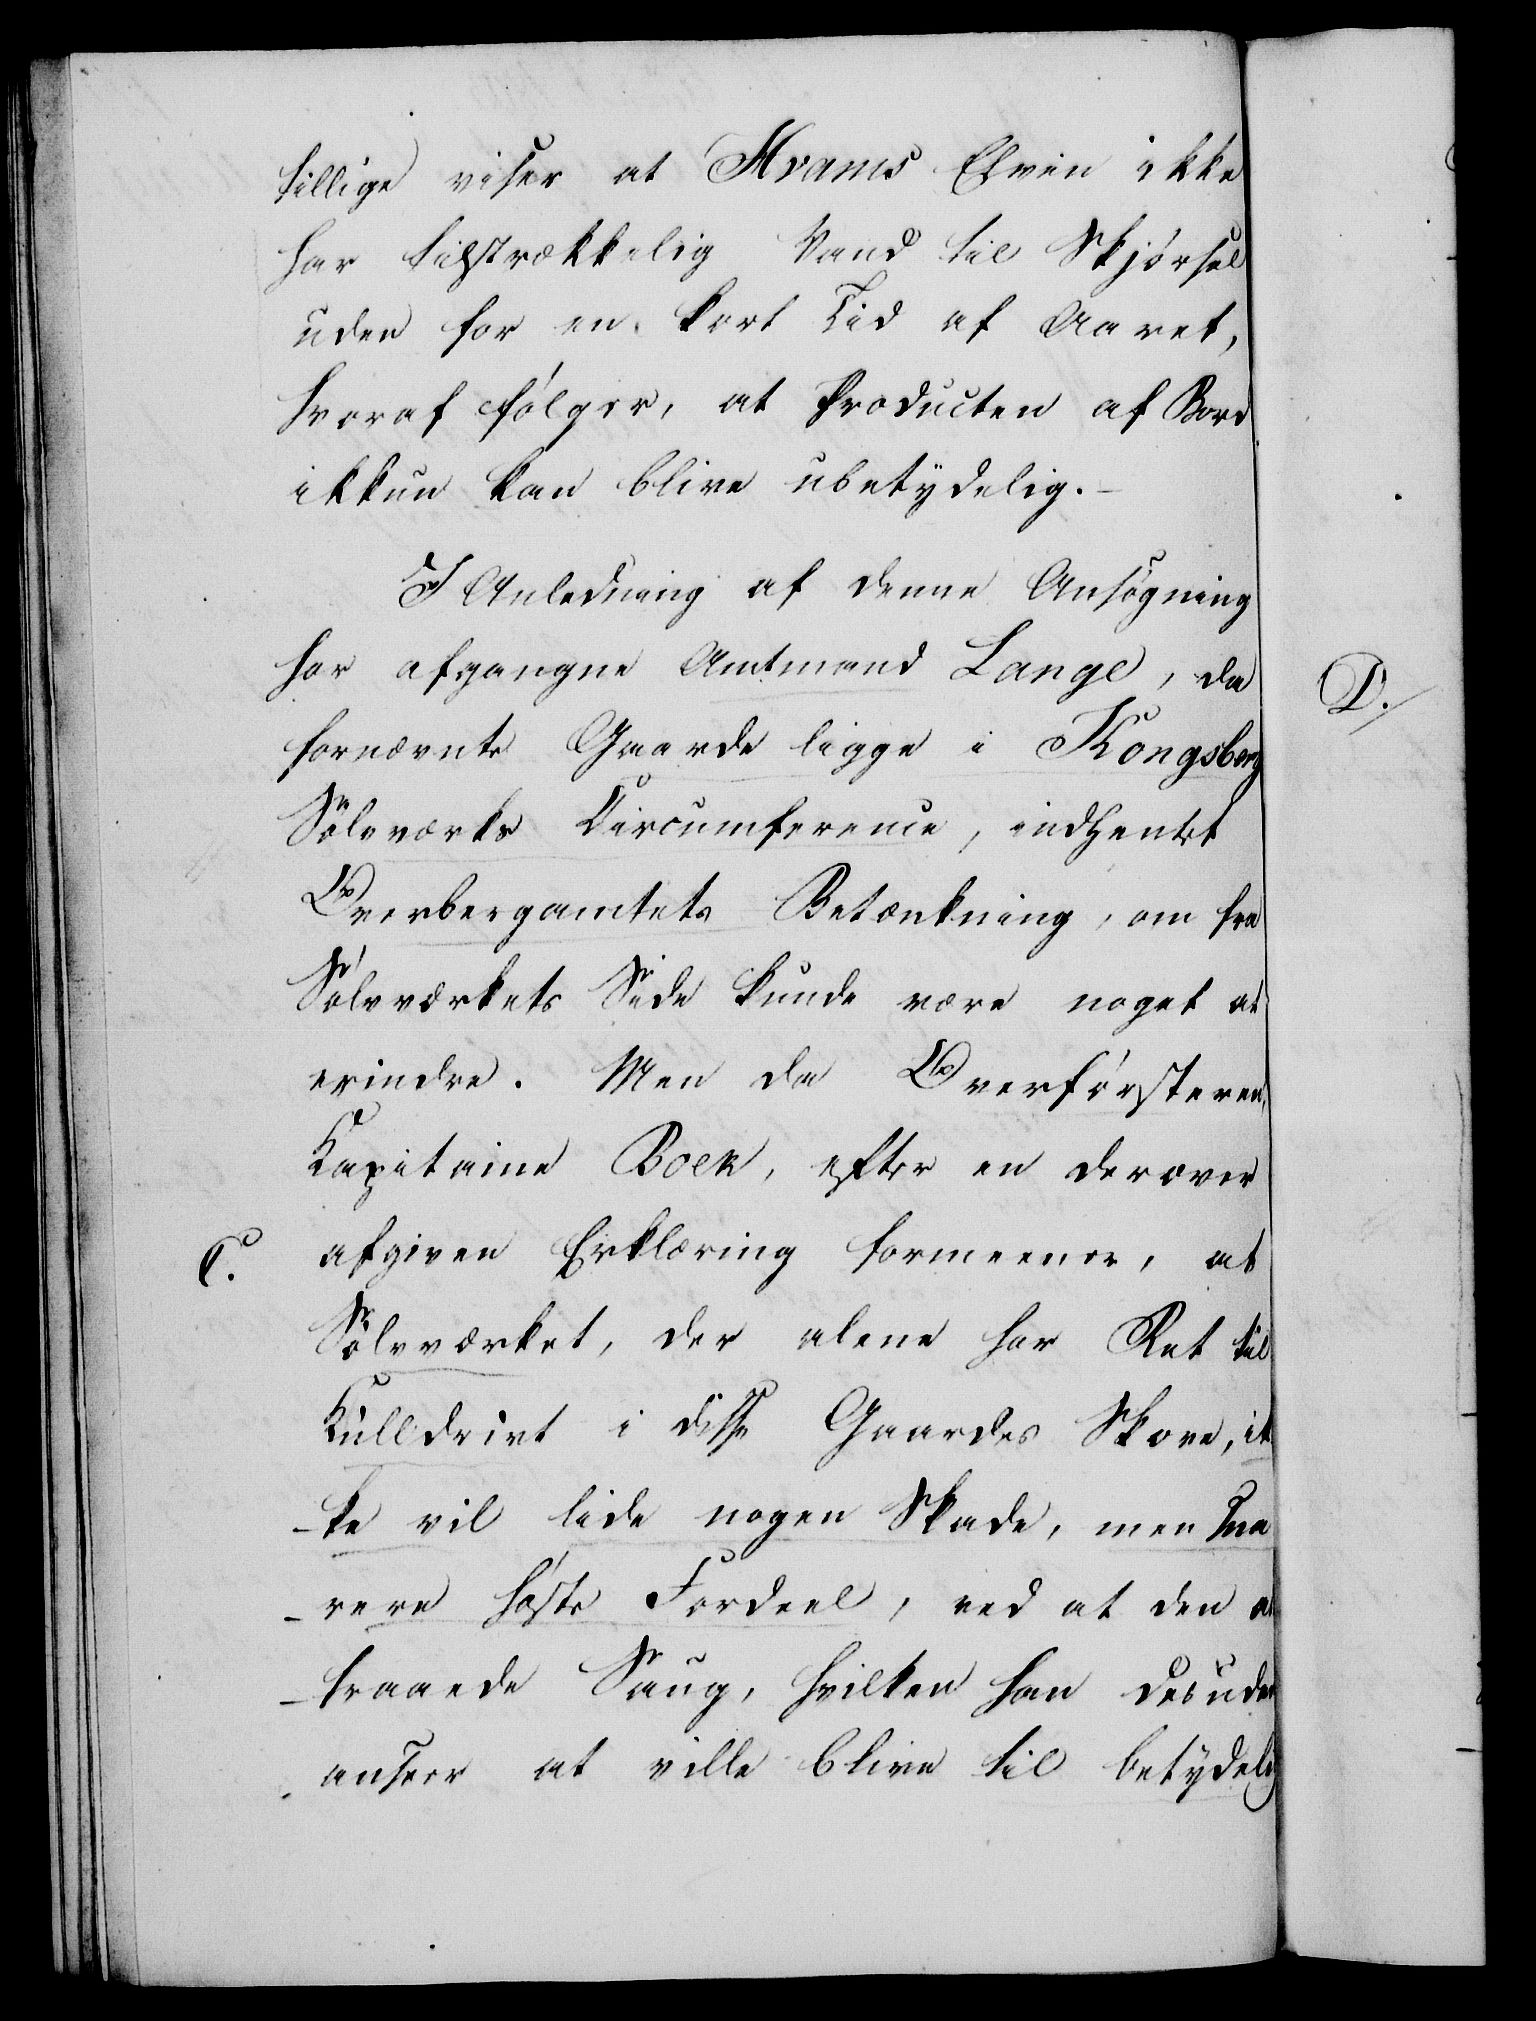 tillige viser at Hvams Elven ikke
har tilstrækkelig Vand til Skjørsel
uden for en kort Tid af Aaret,
hvoraf følger, at Producten af Bord
ikkun kan blive ubetydelig.-
I Anledning af denne Ansøgning
har afgangne Amtmand Lange, da
D.
fornævnte Gaarde ligge i Kongsberg
Sølvværks Circumference, indhentet
Overbergamtets Betænkning, om fra
Sølvværkets Side kunde være noget at
erindre. Men da Overførsteren,
Capitaine Boek, efter en derover
C.
afgiven Erklæring formeener, at
Sølvværket, der alene har Ret til
Kulldrivt i disse Gaardes Skove, ik
-ke vil lide nogen Skade, men sna
-rere høste Fordeel, ved at den a
-traaede Saug, hvilken han desuden
anseer at ville blive til betydelig